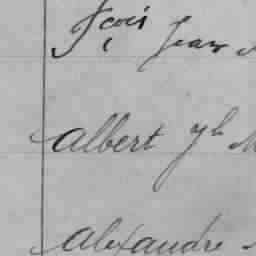 Fçois Jean
Albert
Alexandre